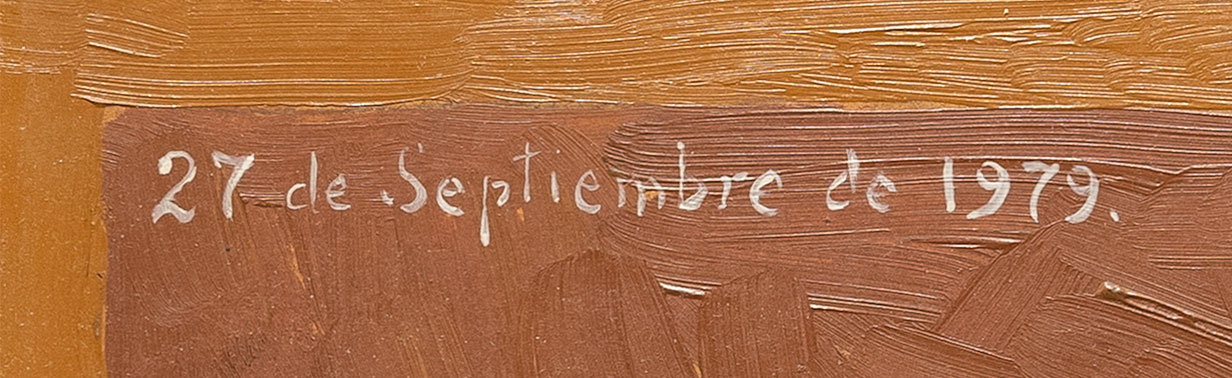 27 de Septiembre de 1979.